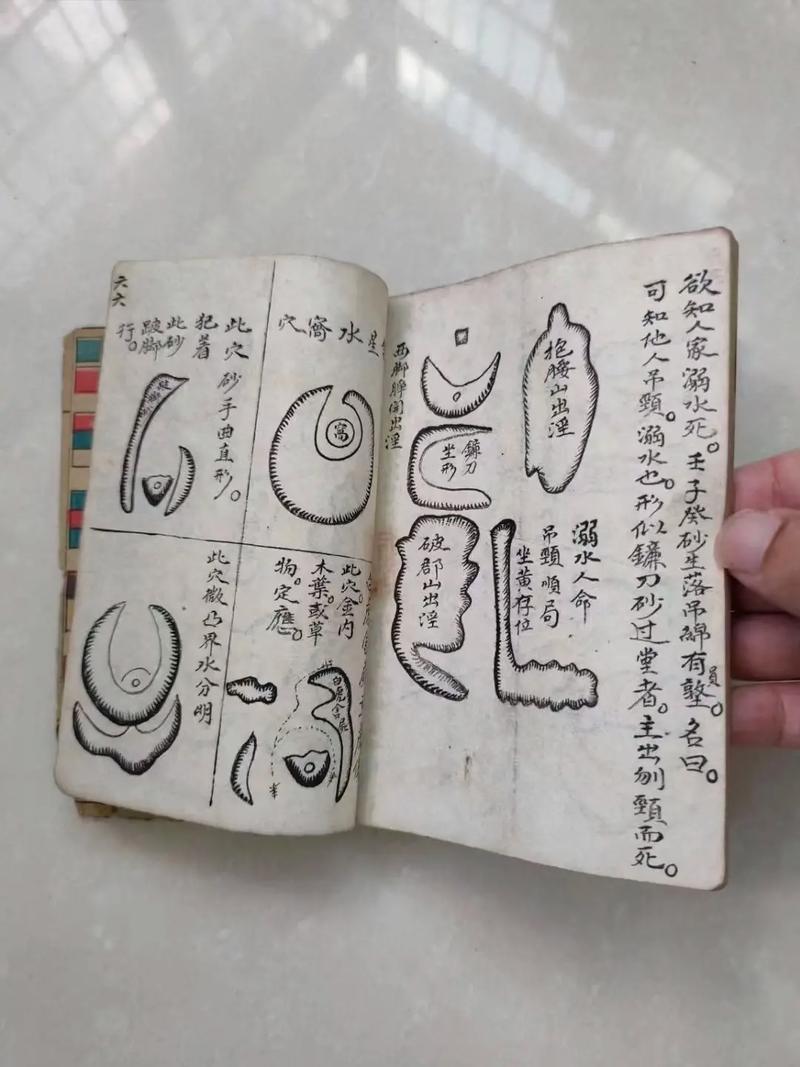 欲知人家溺水死。壬子癸砂生落吊綿有塹。名曰。
員
可知他人吊頸。溺水也。形似鐮刀砂过堂者。主出刎頸而死。
抱腰山出淫
溺水人命
吊頸順局
坐黄存位
鐮刀
坐形
破郡山出淫
西脚睜開出淫
星水窩穴
窩
此穴金内
木葉。或草
物。定應。
白虎
六六
此穴砂手曲直形。
犯着
此砂
跛脚
行。
此穴微凸界水分明